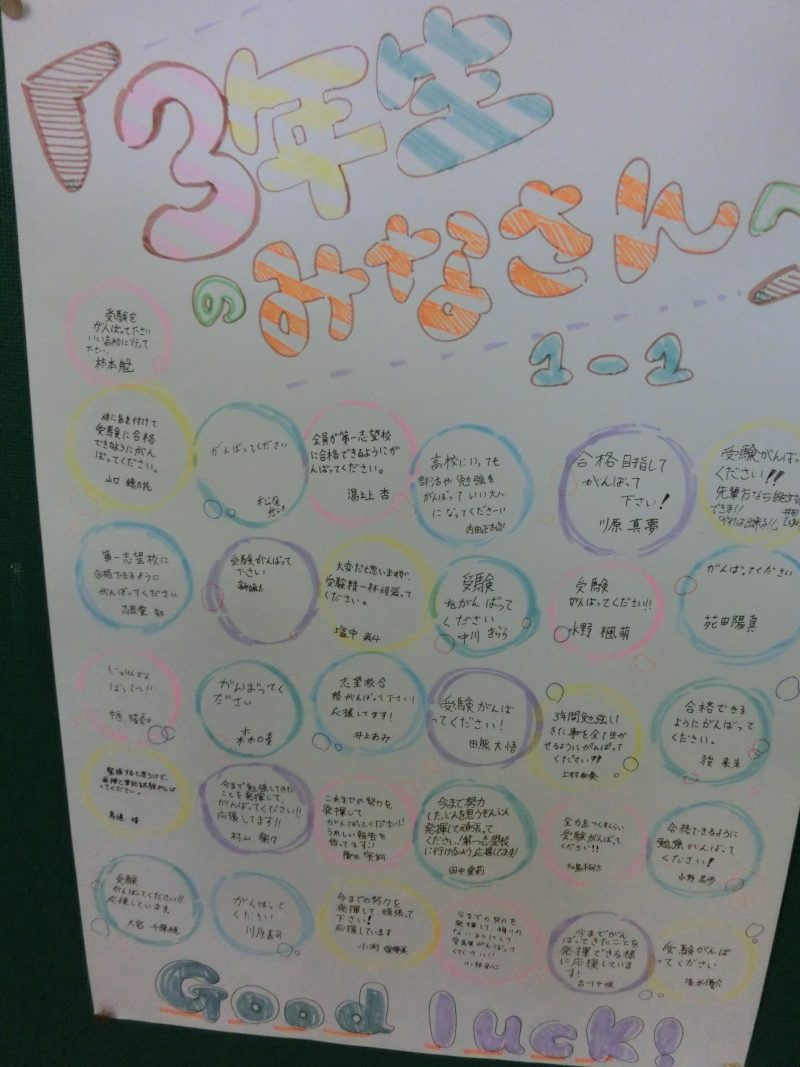 「3年生
のみなさんへ」
1-1
受験を
がんばって下さい
いい高校に行って
下さい。
体に気を付けて
受験に合格
できるようにがん
ばってください。
山口
がんばってください
全員が第一志望校
に合格できるようにが
んばってください。
湯上 杏
高校にいっても
部活や勉強を
がんばって いい大人
になってください
合格目指して
がんばって
下さい!
川原 真夢
受験がんばって
ください!!
先輩方なら絶対
できます!!
やれば出来る!!
第一志望校に
合格できるように
がんばってください
受験がんばって
下さい
大変だと思いますが、
受験精一杯頑張って
ください。
受験
をがんばって
ください
中川 きらら
受験
がんばってください!!
水野 楓萌
がんばってください
苑田陽真
がんばってく
ださい
志望校合
格がんばって下さい!
応援してます!
井上あみ
受験がんば
ってください!
田熊 大悟
3年間勉強して
きた事を全て生か
せるようにがんばって
ください!!
合格できる
ようにがんばって
ください。
緊張すると思うけど、
面接と筆記試験がんば
ってください。
今まで勉強してきた
ことを発揮して、
がんばってください!!
応援してます!!
村山
これまでの努力を
発揮して
がんばってください!!
うれしい報告を
待ってます!
今まで努力
したぶんを思うぞんぶん
発揮して頑張って
ください!第一志望校
に行けるよう応援してます!
田中愛莉
全力をつくすくらい
受験がんばって
ください!!
合格できるように
勉強がんばって
ください!
小野
受験
がんばってください!!
応援しています。
大宮
がんばって
ください
川原
今までの努力を
発揮して 頑張って
下さい!
応援しています
小渕
今までの努力を
発揮して、
ないようにして
がんばって
ください!!
今までがん
ばってきたことを
発揮できる様
に応援していま
す!
吉川千咲
受験がんば
ってください
清水優介
Good luck!